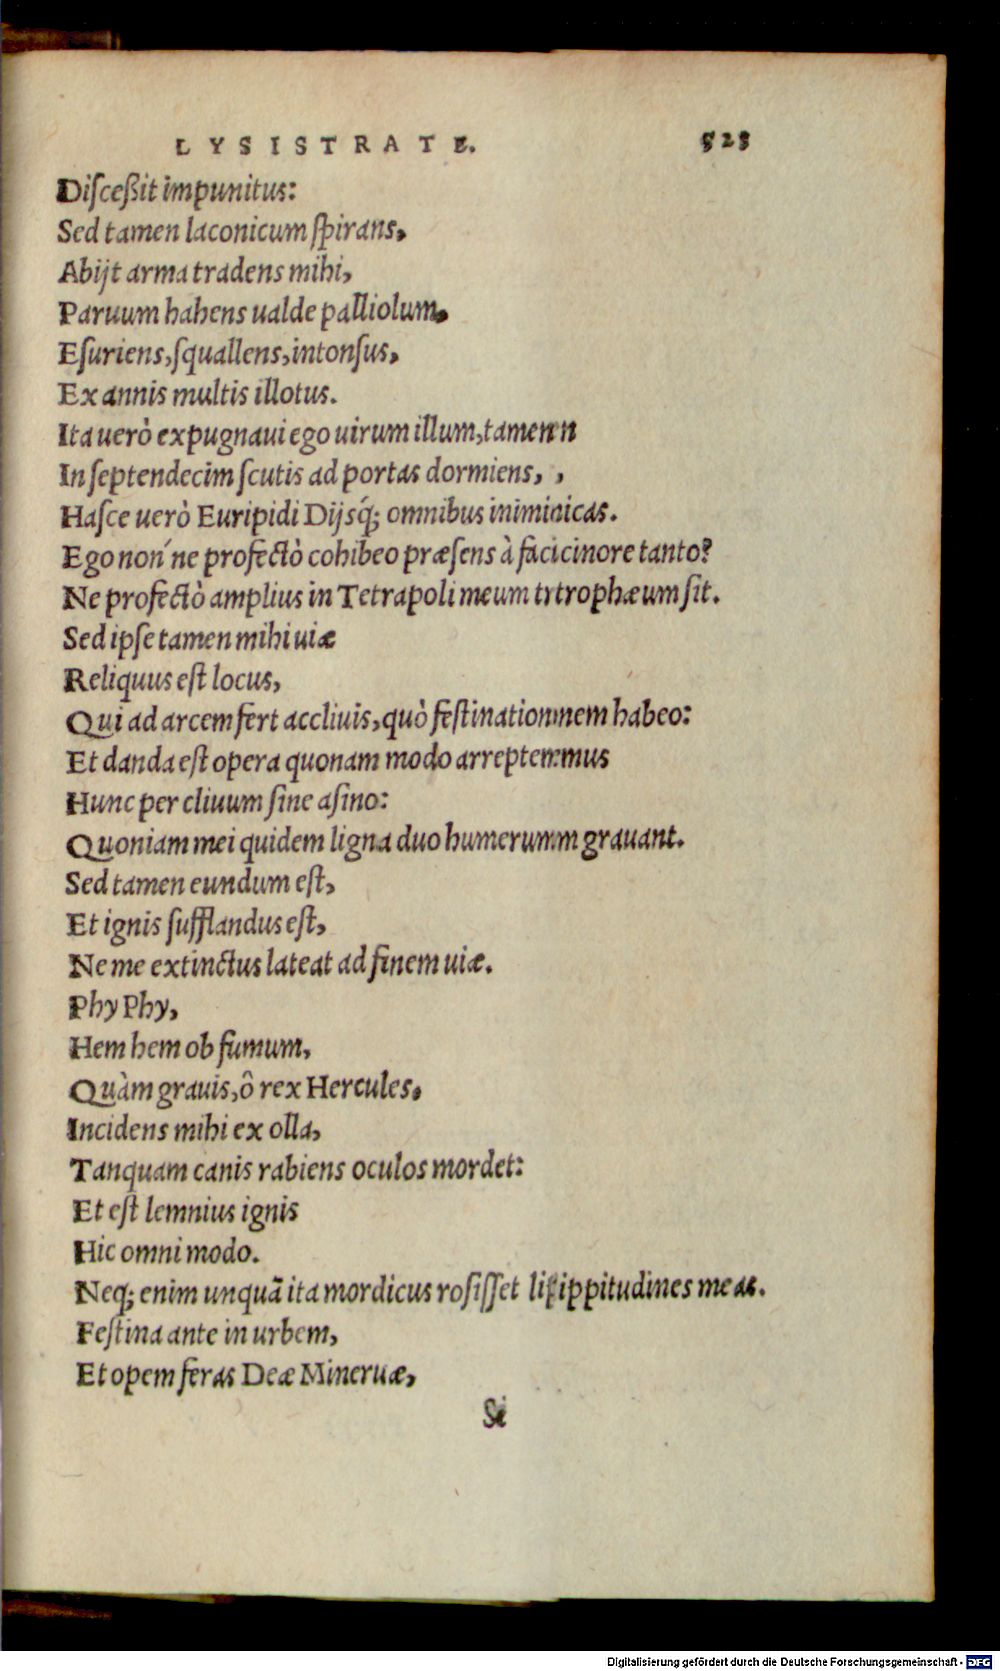 LYSISTRATE. 523
Disceßit impunitus:
Sed tamen laconicum spirans,
Abijt arma tradens mihi,
Paruum hahens ualde palliolum,
Esuriens, squallens, intonsus,
Ex annis multis illotus.
Ita uerò expugnaui ego uirum illum, tamenn
In septendecim scutis ad portas dormiens, ,
Hasce uerò Euripidi Dijsq́; omnibus inimicas.
Ego non´ne profectò cohibeo præsens à facicinore tanto?
Ne profectò amplius in Tetrapoli meum trtrophæum sit.
Sed ipse tamen mihi uiæ
Reliquus est locus,
Qui ad arcem fert accliuis, quò festinationmem habeo:
Et danda est opera quonam modo arreptemmus
Hunc per cliuum sine asino:
Quoniam mei quidem ligna duo humerumm grauant.
Sed tamen eundum est,
Et ignis sufflandus est,
Ne me extinctus lateat ad finem uiæ.
Phy Phy,
Hem hem ob fumum,
Quàm grauis, ô rex Hercules,
Incidens mihi ex olla,
Tanquam canis rabiens oculos mordet:
Et est lemnius ignis
Hic omni modo.
Neq; enim unquā ita mordicus rosisset lippitudines meas.
Festina ante in urbem,
Et opem feras Deæ Mineruæ,
Si
Digitalisierung gefördert durch die Deutsche Forschungsgemeinschaft - DFG